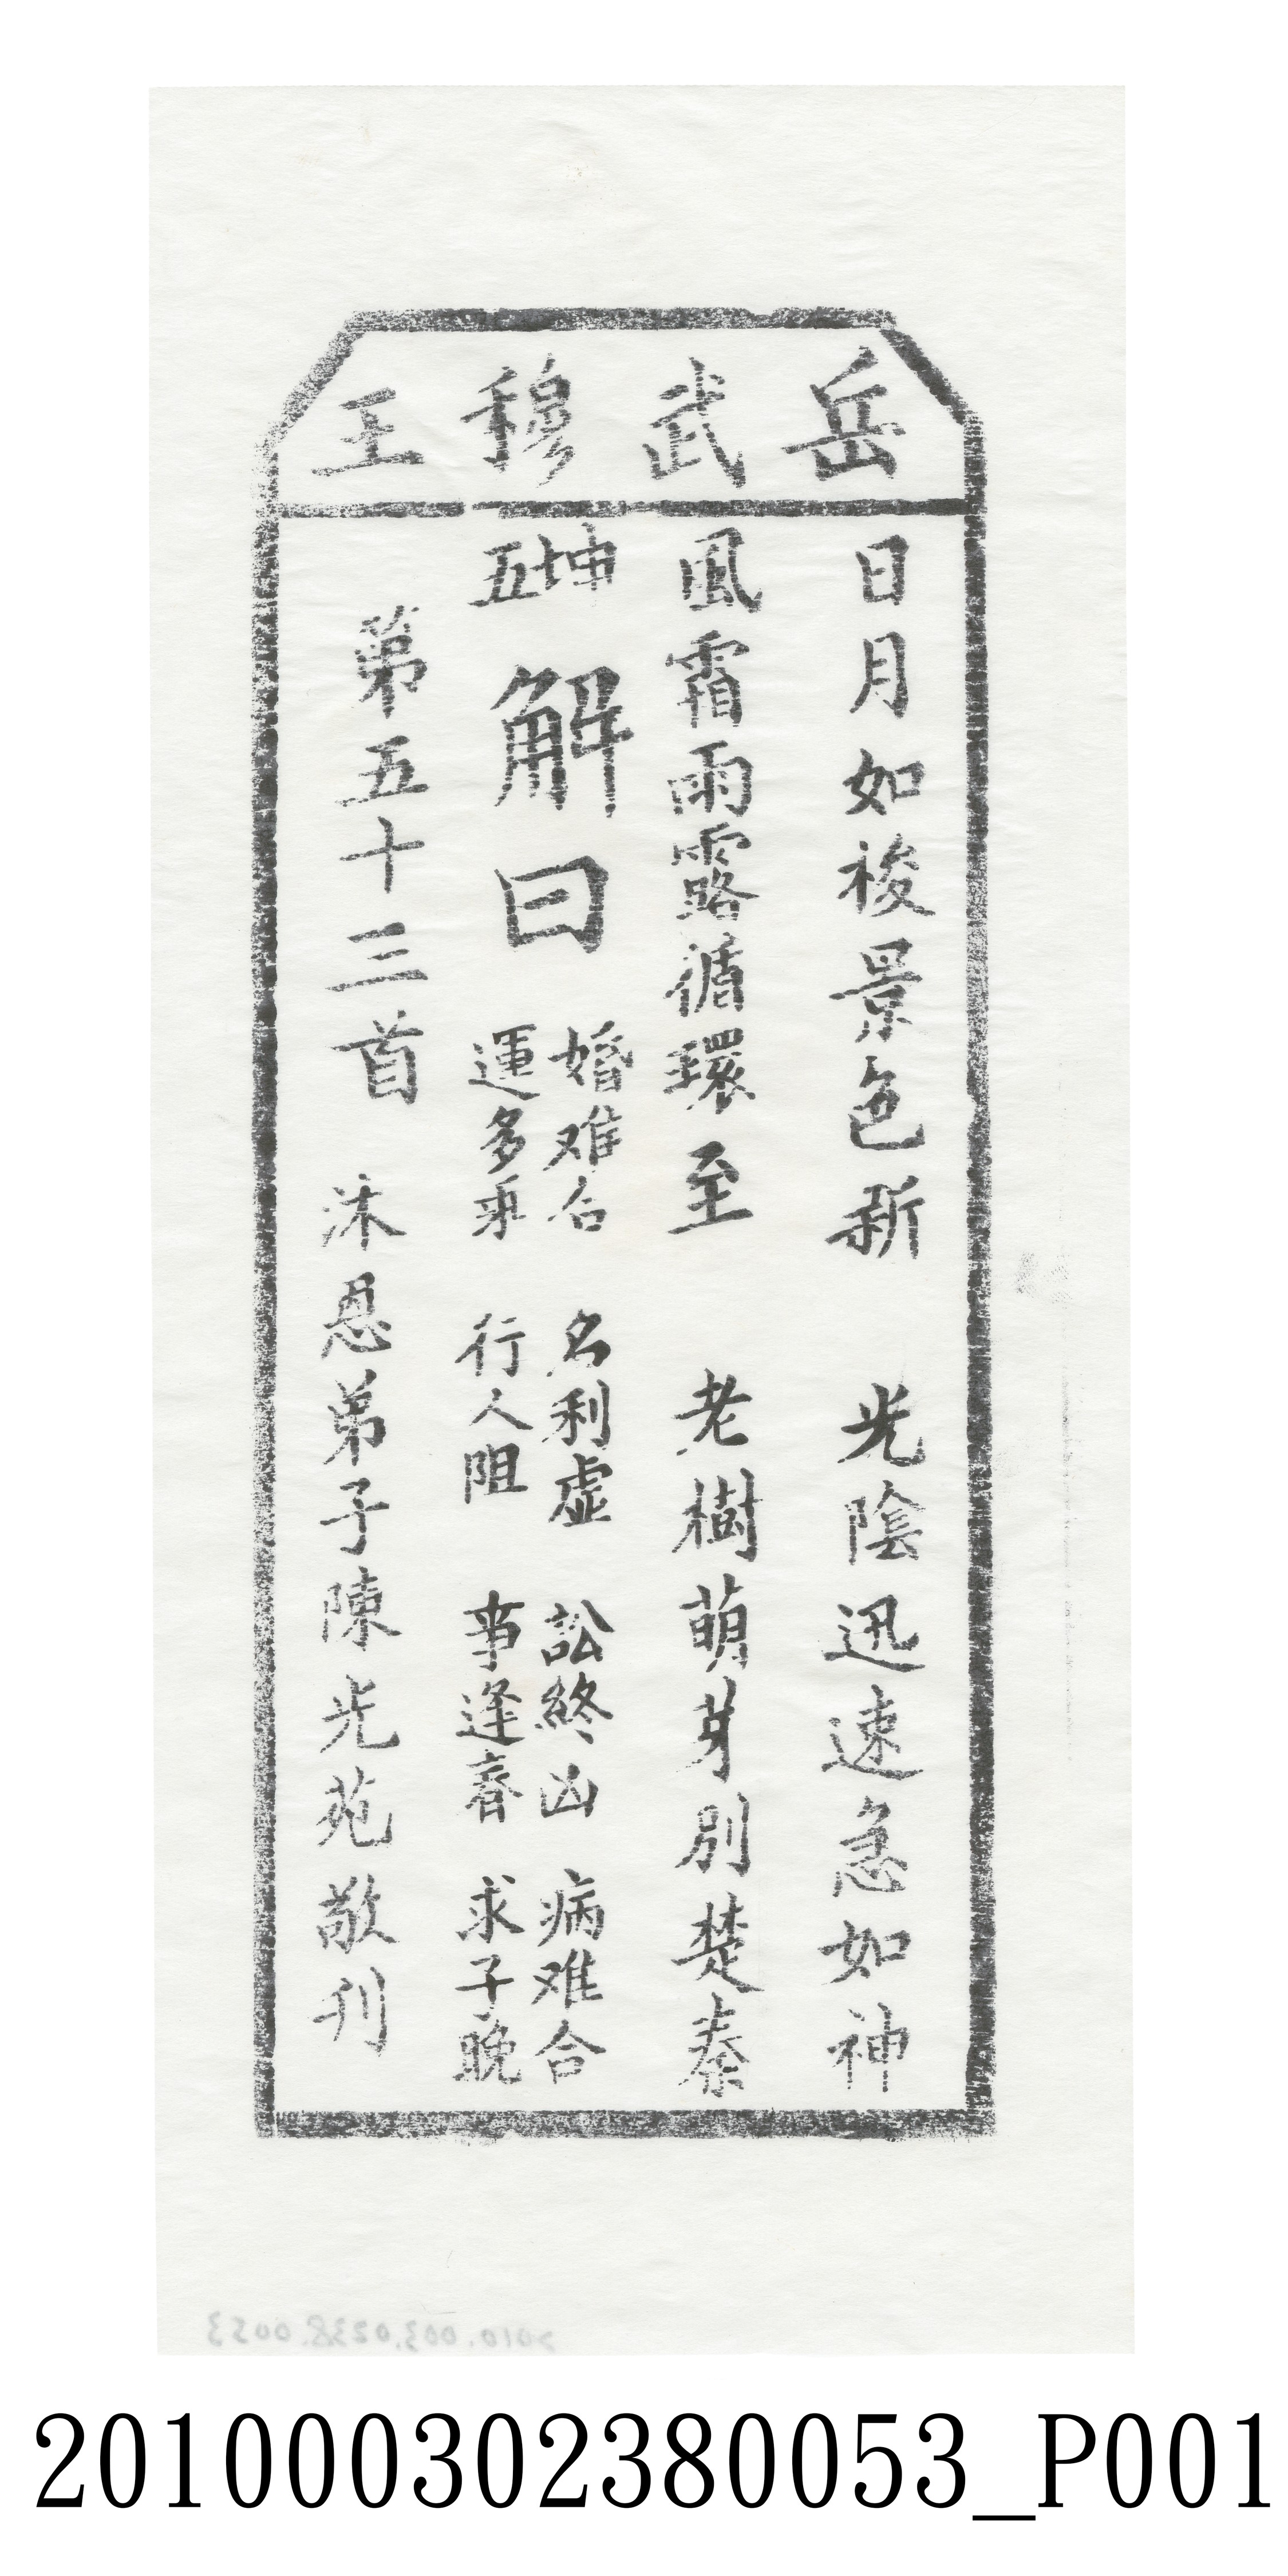 岳武穆王
日月如梭景色新　光陰迅速急如神
風霜雨露循環至　老樹萌芽別楚秦
坤五
解曰
婚难合　名利虛　訟終凶　病难合
運多乖　行人阻　事逢春　求子晚
第五十三首　沐恩弟子陳光苑敬刊
2010.003.0238.0053
201000302380053_P001